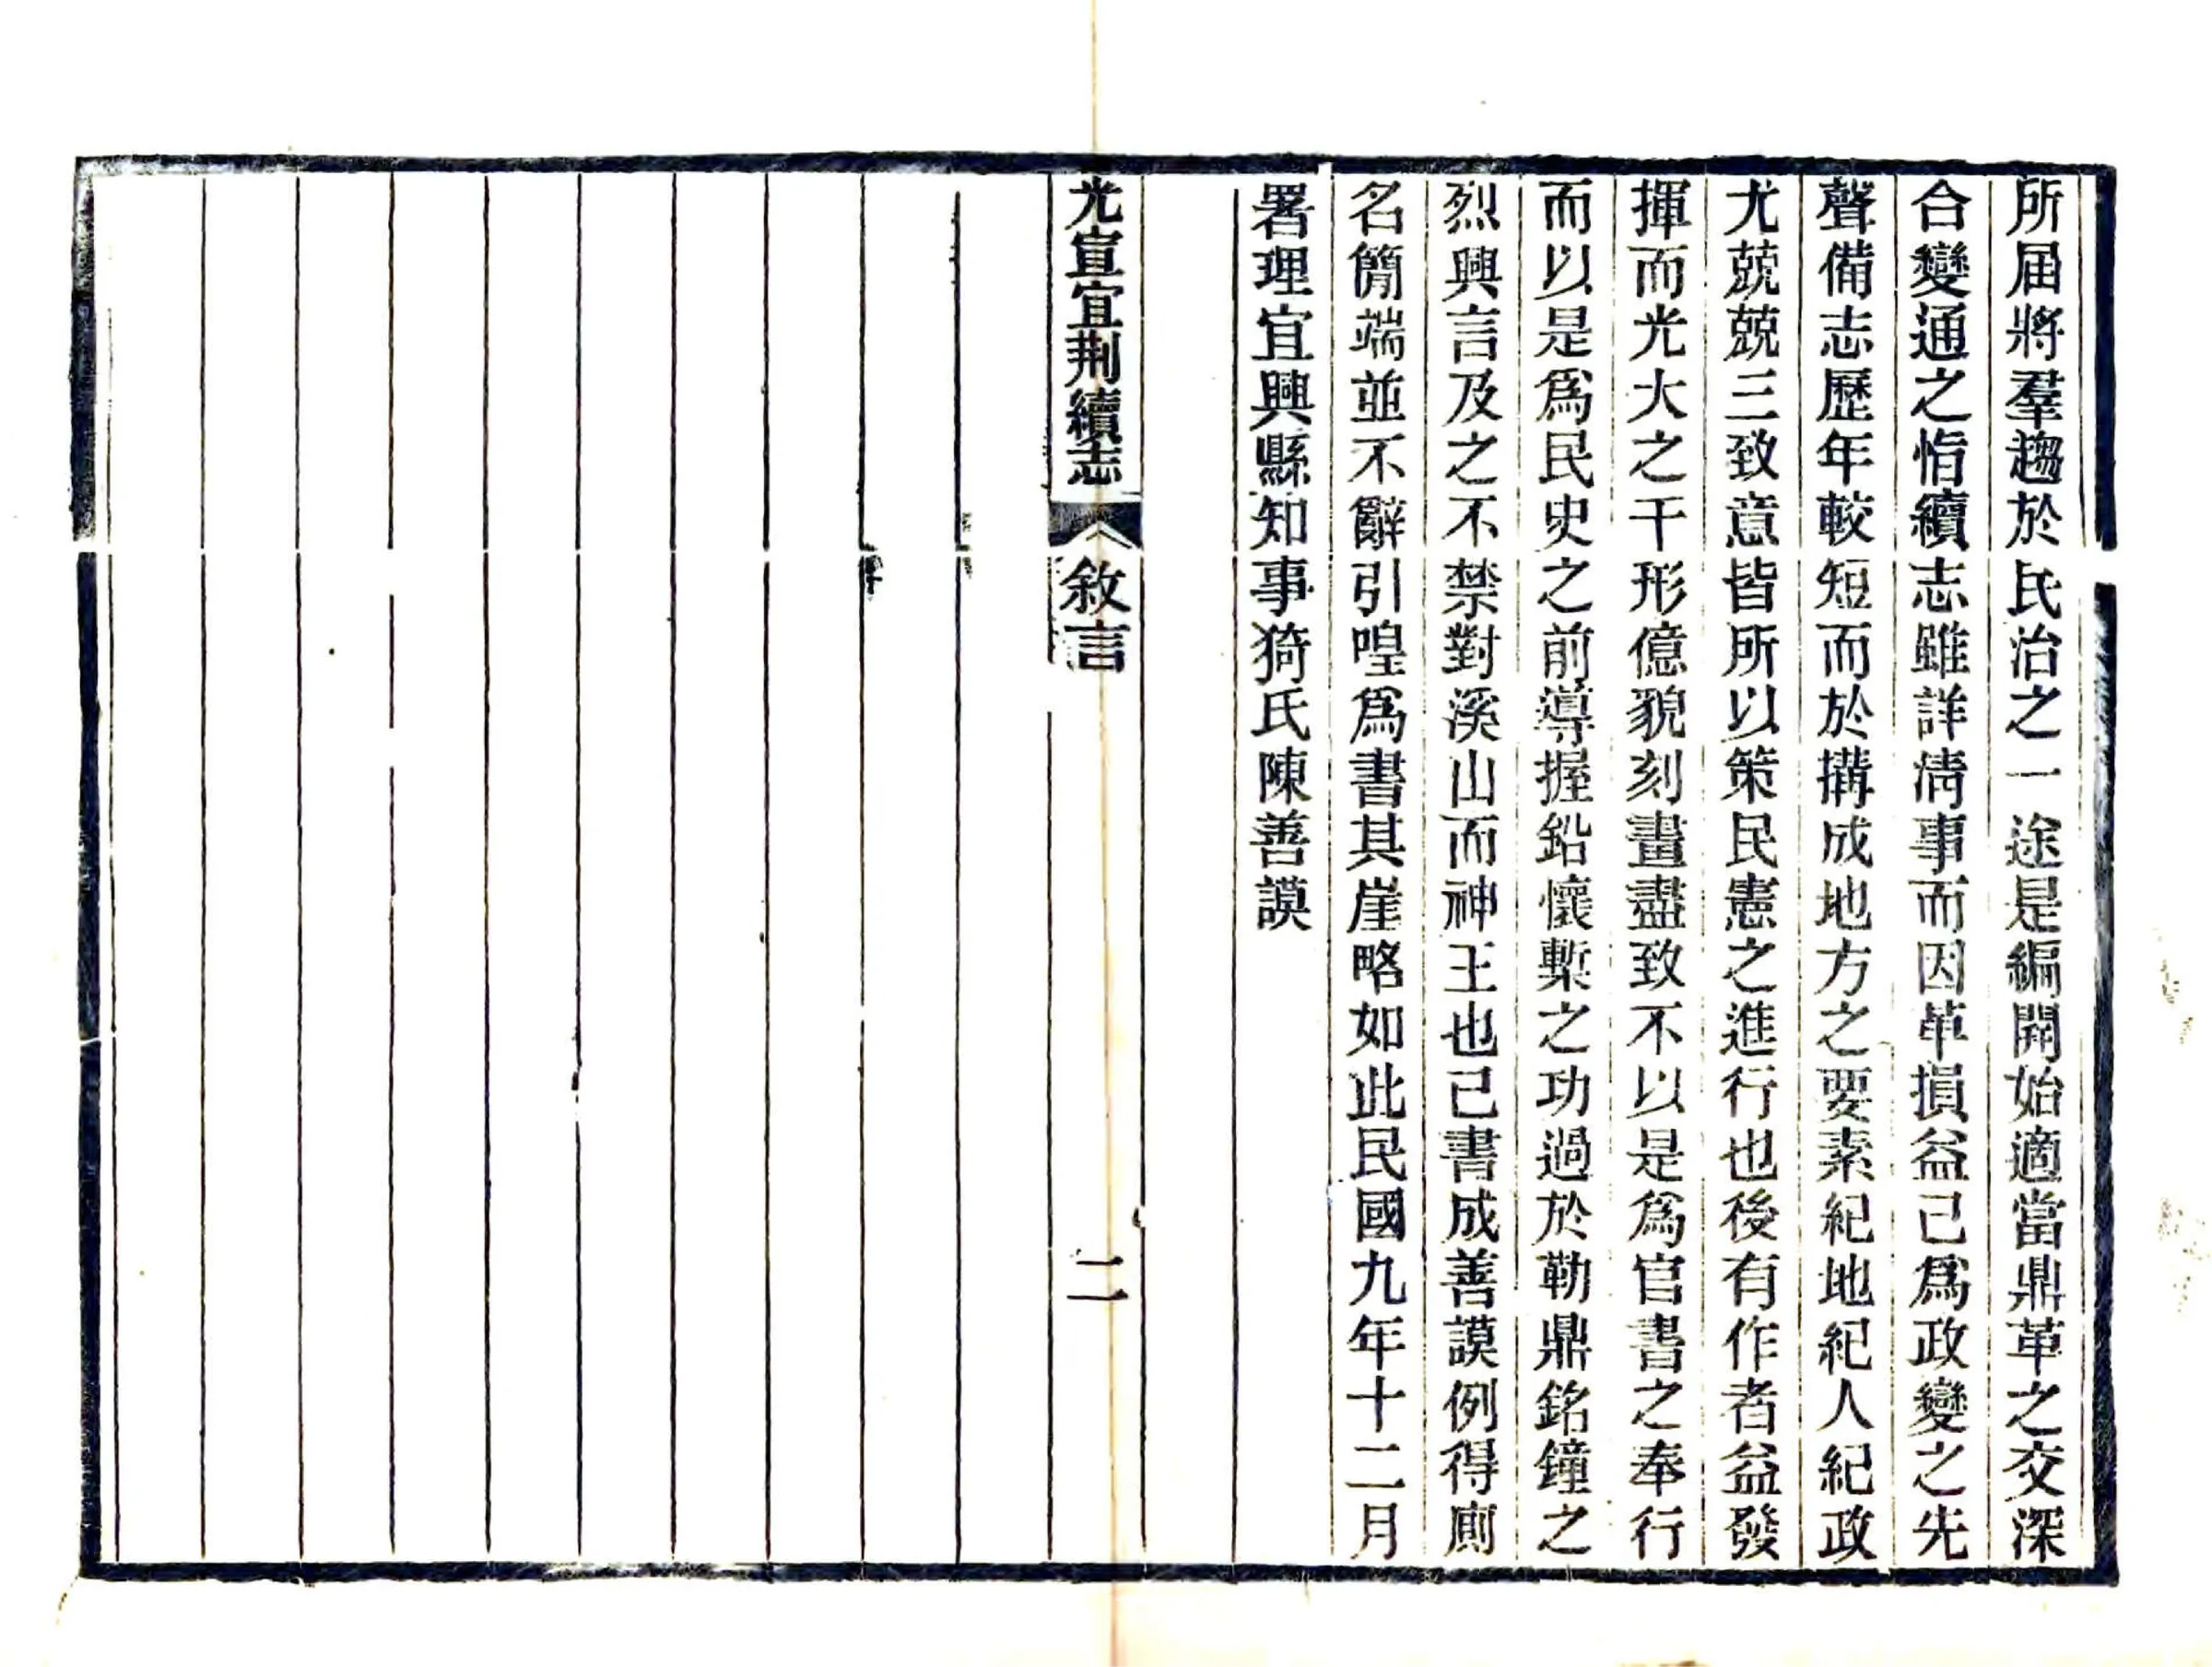 所屆將羣趨於民治之一途是編開始適當鼎革之交深
合變通之恉續志雖詳清事而因革損益已爲政變之先
聲備志歷年較短而於搆成地方之要素紀地紀人紀政
尤兢兢三致意皆所以策民憲之進行也後有作者益發
揮而光大之干形億貌刻畫盡致不以是爲官書之奉行
而以是爲民史之前導握鉛懷槧之功過於勒鼎銘鐘之
烈興言及之不禁對溪山而神王也已書成善謨例得廁
名簡端並不辭引喤爲書其崖略如此民國九年十二月
署理宜興縣知事猗氏陳善謨
光宣宜荆續志
敘言
二